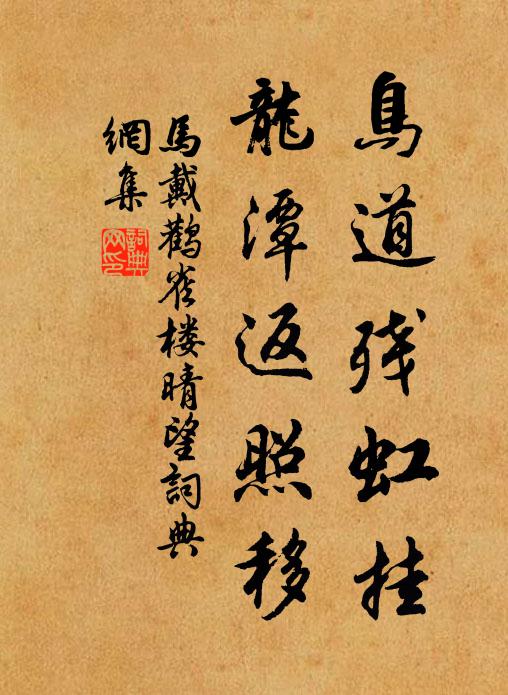 鳥道残虹挂
龍潭返照移
馬戴鸛雀楼晴望詞典
網集
詞典
网印